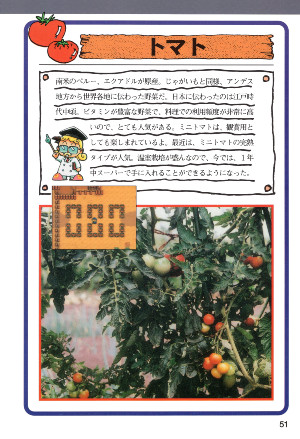 トマト
南米のペルー、エクアドルが原産。じゃがいもと同様、アンデス
地方から世界各地に伝わった野菜だ。日本に伝わったのは江戸時
代中頃。ビタミンが豊富な野菜で、料理での利用頻度が非常に高
いので、とても人気がある。ミニトマトは、観賞用と
しても楽しまれているよ。最近は、ミニトマトの完熟
タイプが人気。温室栽培が盛んなので、今では、1年
中スーパーで手に入れることができるようになった。
51